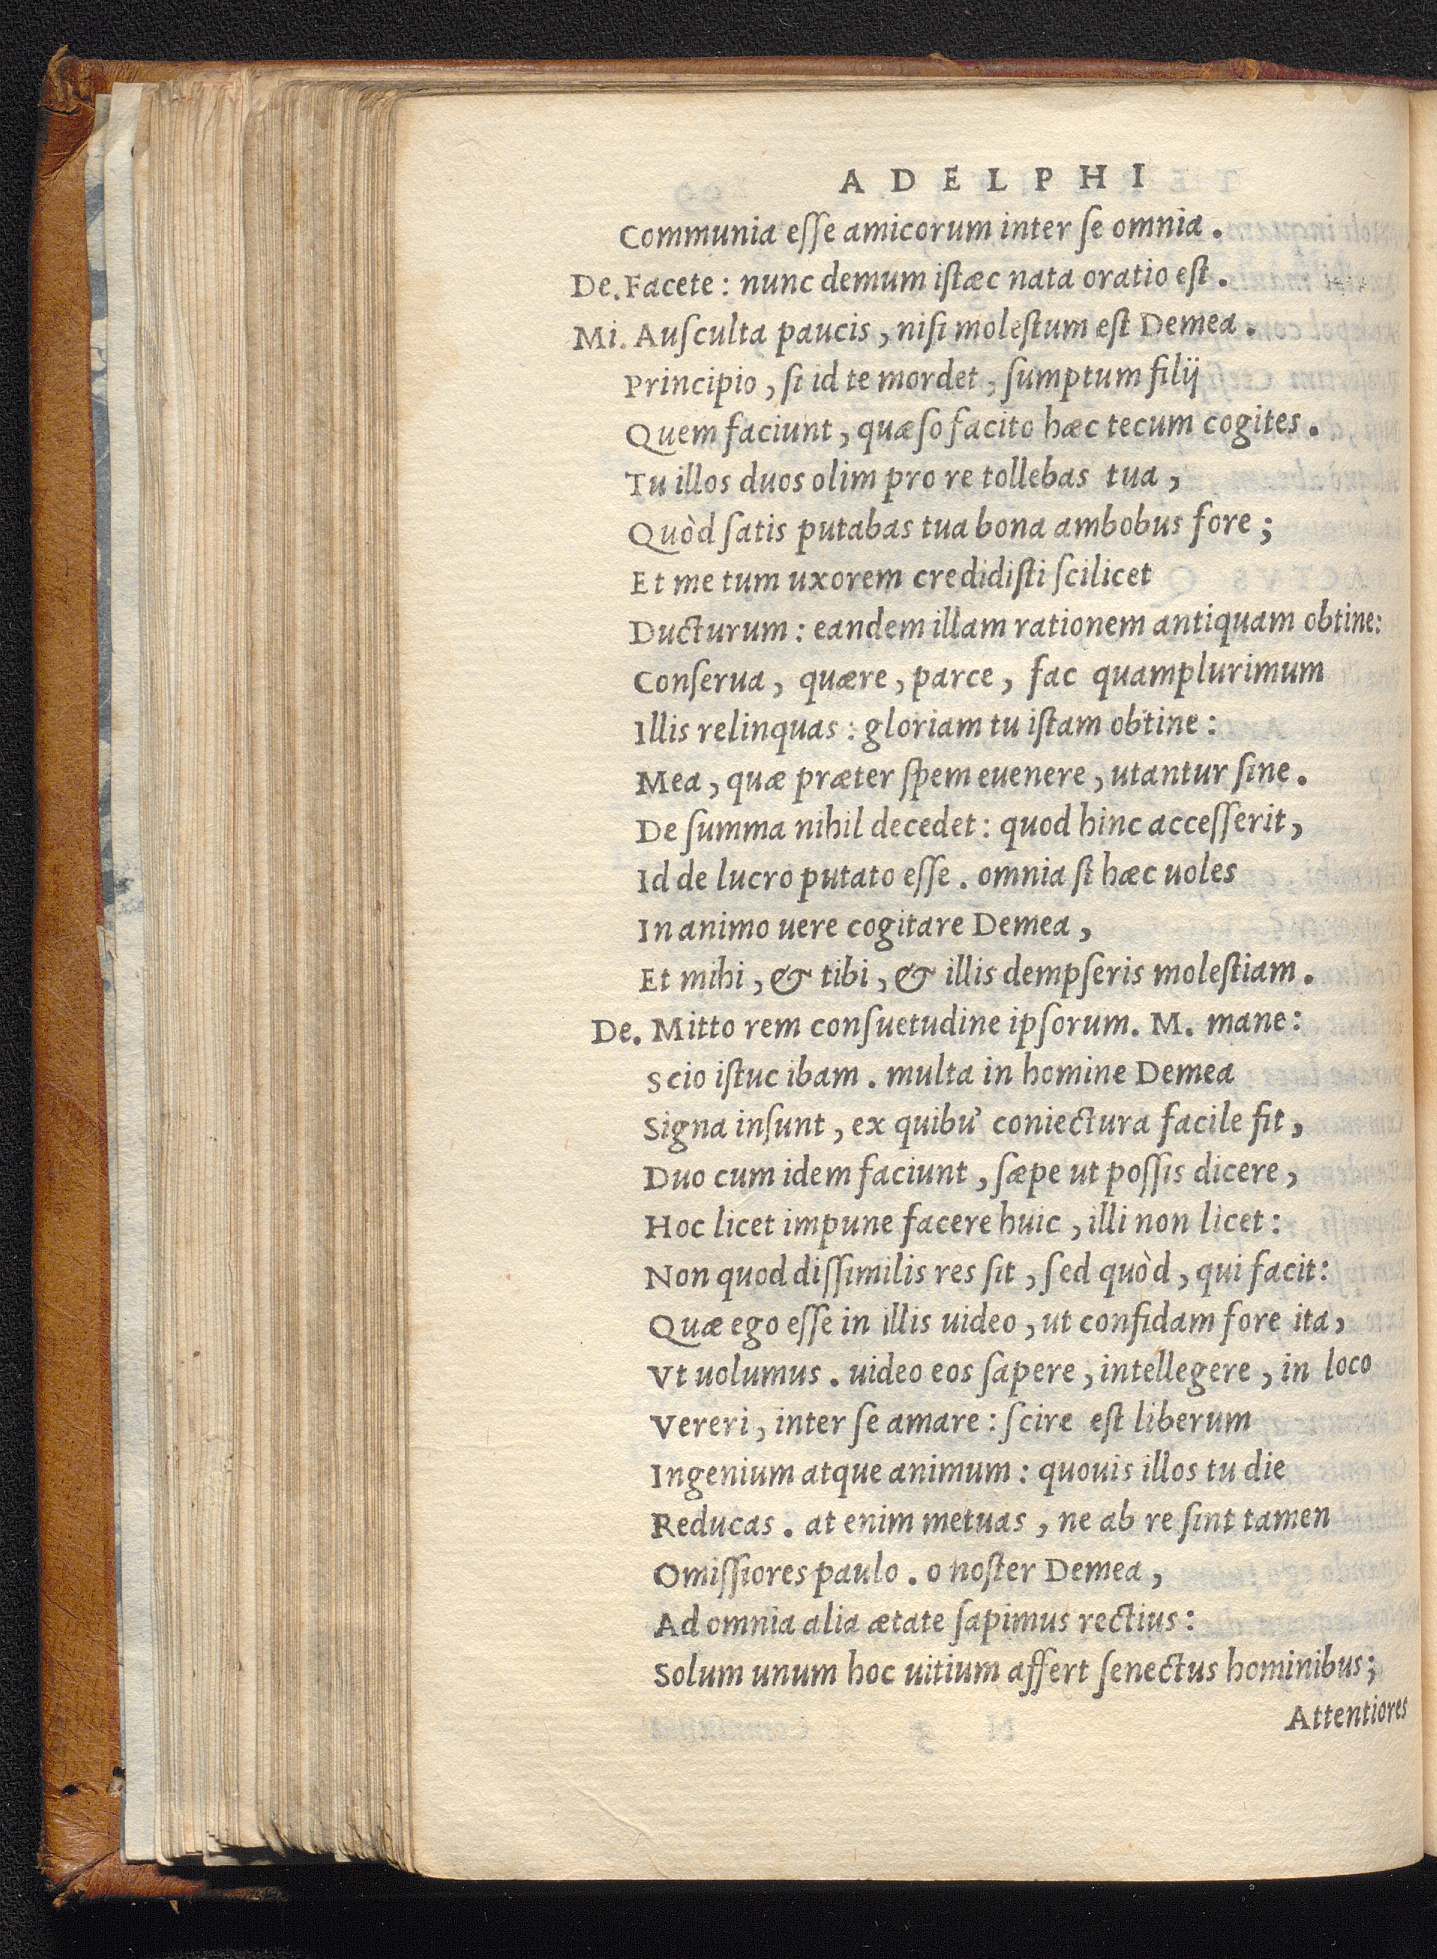 ADELPHI
Communia eſſe amicorum inter ſe omnia.
De. Facete: nunc demum iſtæc nata oratio eſt.
Mi. Auſculta paucis, niſi moleſtum eſt Demea.
Principio, ſi id te mordet, ſumptum filij
Quem faciunt, quæſo facito hæc tecum cogites.
Tu illos duos olim pro re tollebas tua,
Quòd ſatis putabas tua bona ambobus fore;
Et me tum uxorem credidiſti ſcilicet
Ducturum: eandem illam rationem antiquam obtine:
Conſerua, quære, parce, fac quamplurimum
Illis relinquas: gloriam tu iſtam obtine:
Mea, quæ præter ſpem euenere, utantur ſine.
De ſumma nihil decedet: quod hinc acceſſerit,
Id de lucro putato eſſe. omnia ſi hæc uoles
In animo uere cogitare Demea,
Et mihi, & tibi, & illis dempſeris moleſtiam.
De. Mitto rem conſuetudine ipſorum. M. mane:
Scio iſtuc ibam. multa in homine Demea
Signa inſunt, ex quibu' coniectura facile fit,
Duo cum idem faciunt, ſæpe ut poſſis dicere,
Hoc licet impune facere huic, illi non licet:
Non quod diſſimilis res ſit, ſed quòd, qui facit:
Quæ ego eſſe in illis uideo, ut confidam fore ita,
Vt uolumus. uideo eos ſapere, intellegere, in loco
Vereri, inter ſe amare: ſcire eſt liberum
Ingenium atque animum: quouis illos tu die
Reducas. at enim metuas, ne ab re ſint tamen
Omiſſiores paulo. o noſter Demea,
Ad omnia alia ætate ſapimus rectius:
Solum unum hoc uitium affert ſenectus hominibus;
Attentiores